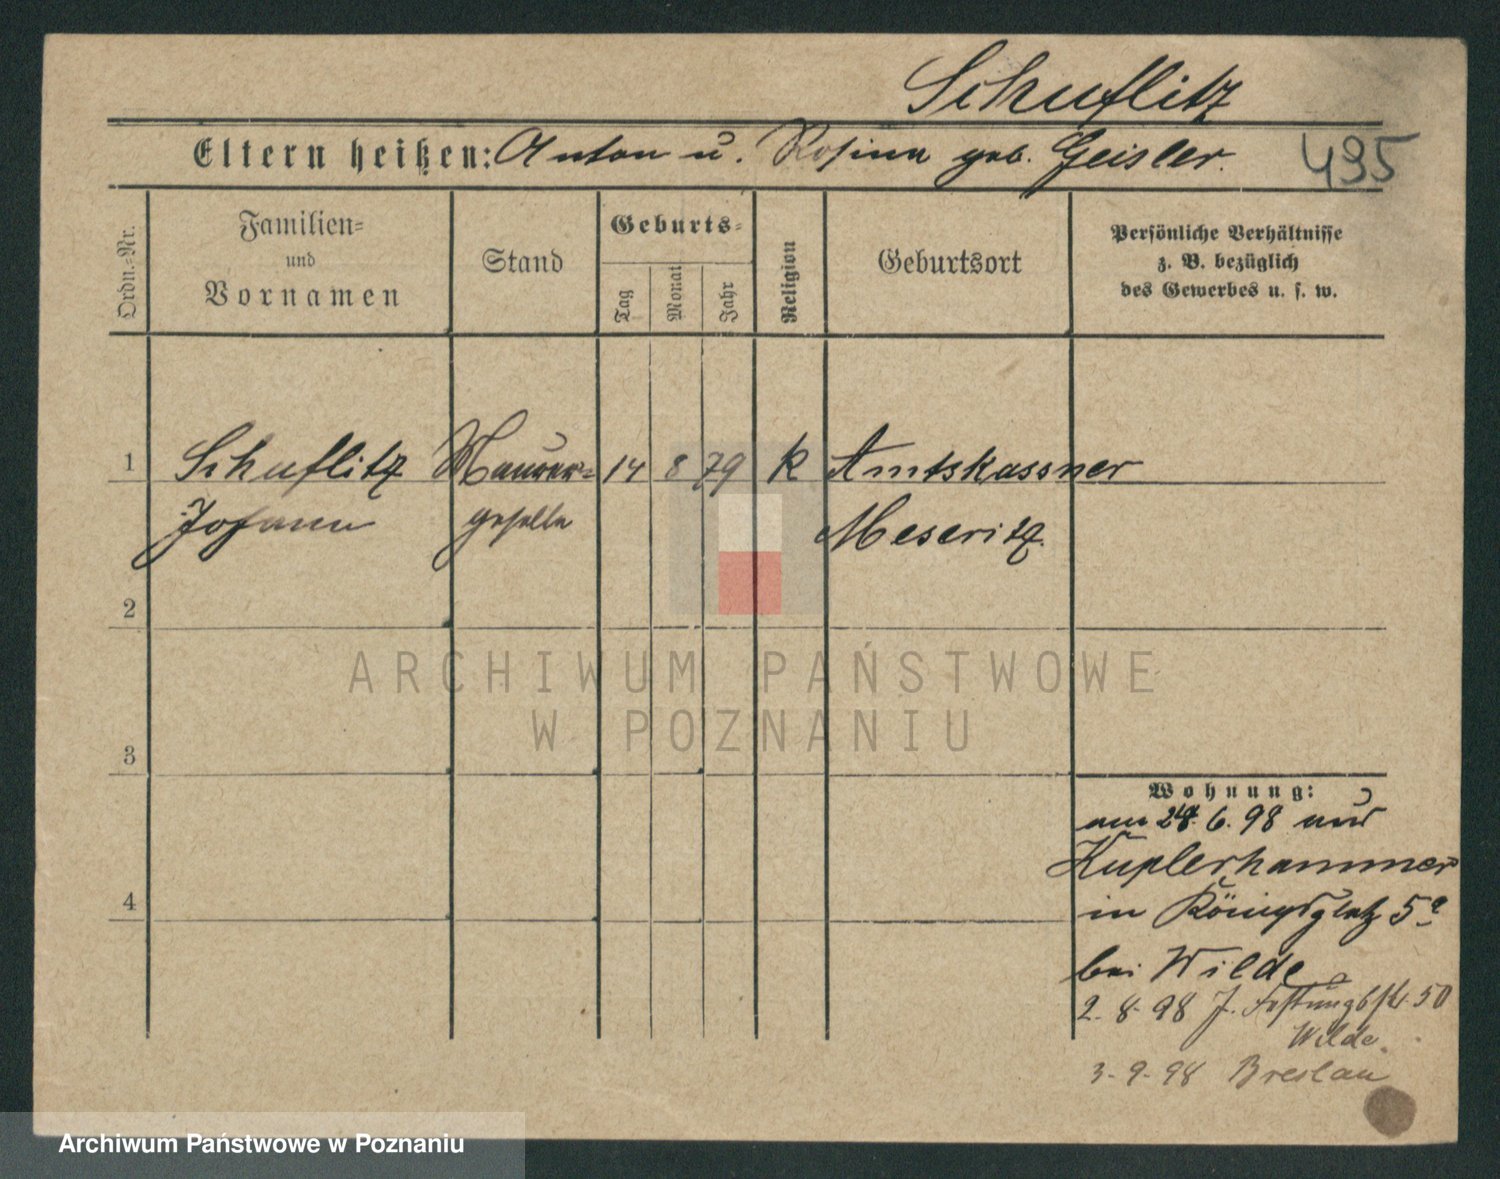 Schuflitz
Eltern heißen: Anton u. Rosina geb. Geisler.
495
Ordn.-Nr.
Familien- und Vornamen
Stand
Geburts-
Tag
Monat
Jahr
Religion
Geburtsort
Persönliche Verhältnisse
z. B. bezüglich
des Gewerbes u. s. w.
1 Schuflitz Maurer- 14 8 79 K Amtskassner
Johann geselle Meseritz.
2
3
4
Wohnung:
am 28. 6. 98 aus
Kupferhammer
in Königsplatz 5a
bei Wilde
2. 8. 98 J. Festungsstr. 50
Wilde.
3. 9. 98 Breslau
ARCHIWUM PAŃSTWOWE
W POZNANIU
Archiwum Państwowe w Poznaniu